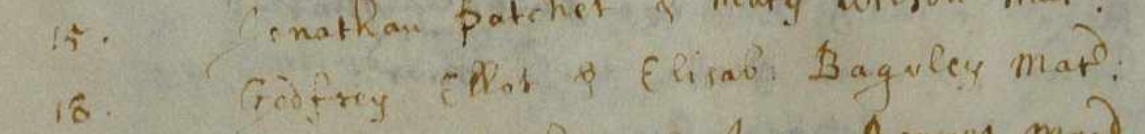 15. Jonathan Patchet & Mary Wilson Mar:
18. Godfrey Ellot & Elisab: Baguley Mard: